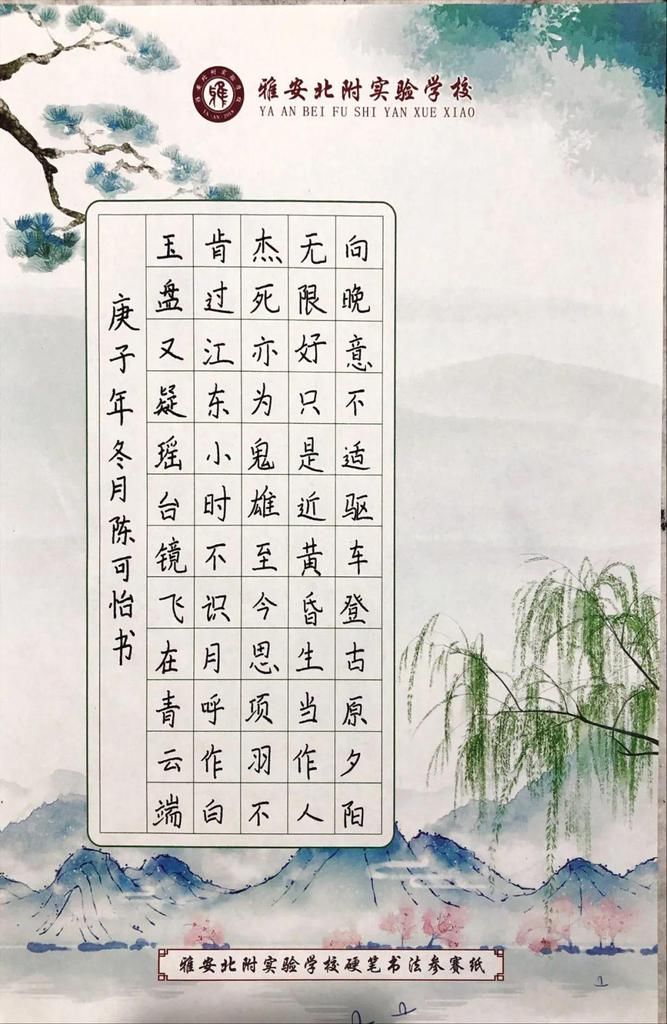 雅安北附实验学校
YA AN BEI FU SHI YAN XUE XIAO
向晚意不适驱车登古原夕阳
无限好只是近黄昏生当作人
杰死亦为鬼雄至今思项羽不
肯过江东小时不识月呼作白
玉盘又疑瑶台镜飞在青云端
庚子年冬月陈可怡书
雅安北附实验学校硬笔书法参赛纸